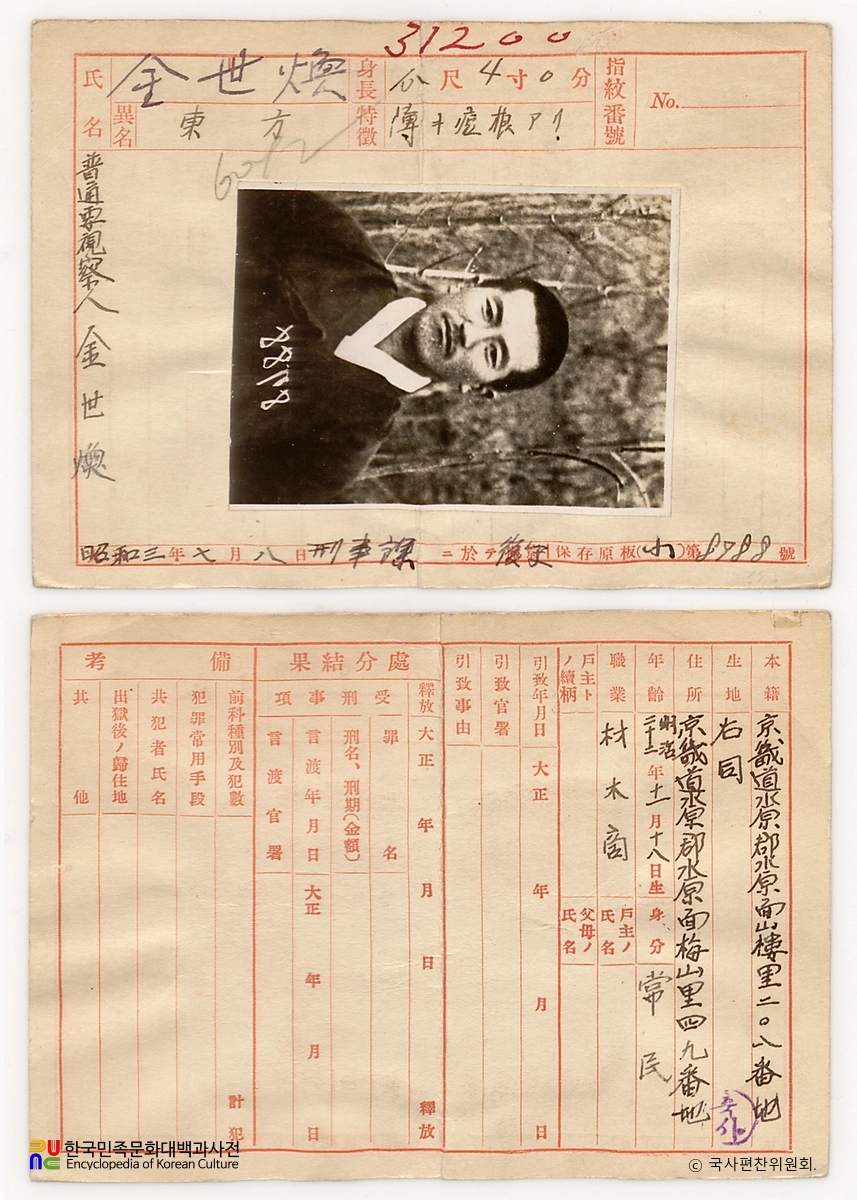 31200
氏名
金世煥
異名
東方
身長
尺4寸0分
特徵
薄キ痘痕アリ
指紋番號
No.
普通要視察人 金世煥
8788
昭和三年七月八日刑事課ニ於テ 保存原板(小)第8788號
本籍
京畿道水原郡水原面山樓里二〇八番地
生地
右同
住所
京畿道水原郡水原面梅山里四九番地
年齡
明治二十二年十一月十八日生
身分
常民
職業
材木商
戶主ノ氏名
戶主トノ續柄
父母ノ氏名
引致年月日
大正 年 月 日
引致官署
引致事由
處分結果
釋放
大正 年 月 日 釋放
受刑事項
罪名
刑名、刑期(金額)
言渡年月日
大正 年 月 日
言渡官署
備考
前科種別及犯數
計 犯
犯罪常用手段
共犯者氏名
出獄後ノ歸住地
其他
한국민족문화대백과사전
Encyclopedia of Korean Culture
© 국사편찬위원회.